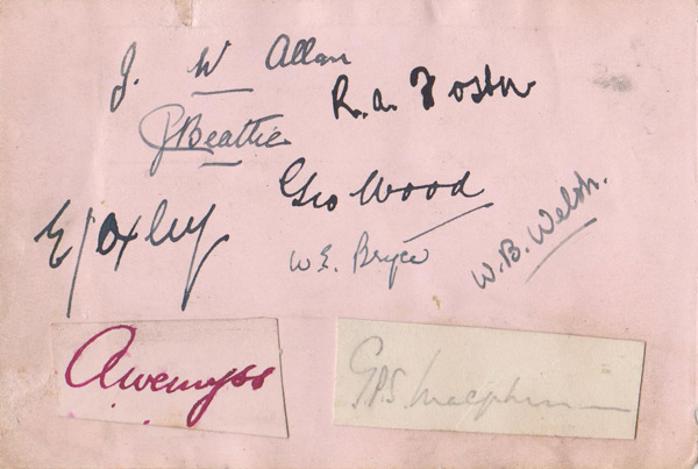 J. W Allan
R. A. Foster
J Beattie
Geo Wood
W.B. Welsh.
W.E. Bryce
A Wemyss
G.P.S. Macpherson